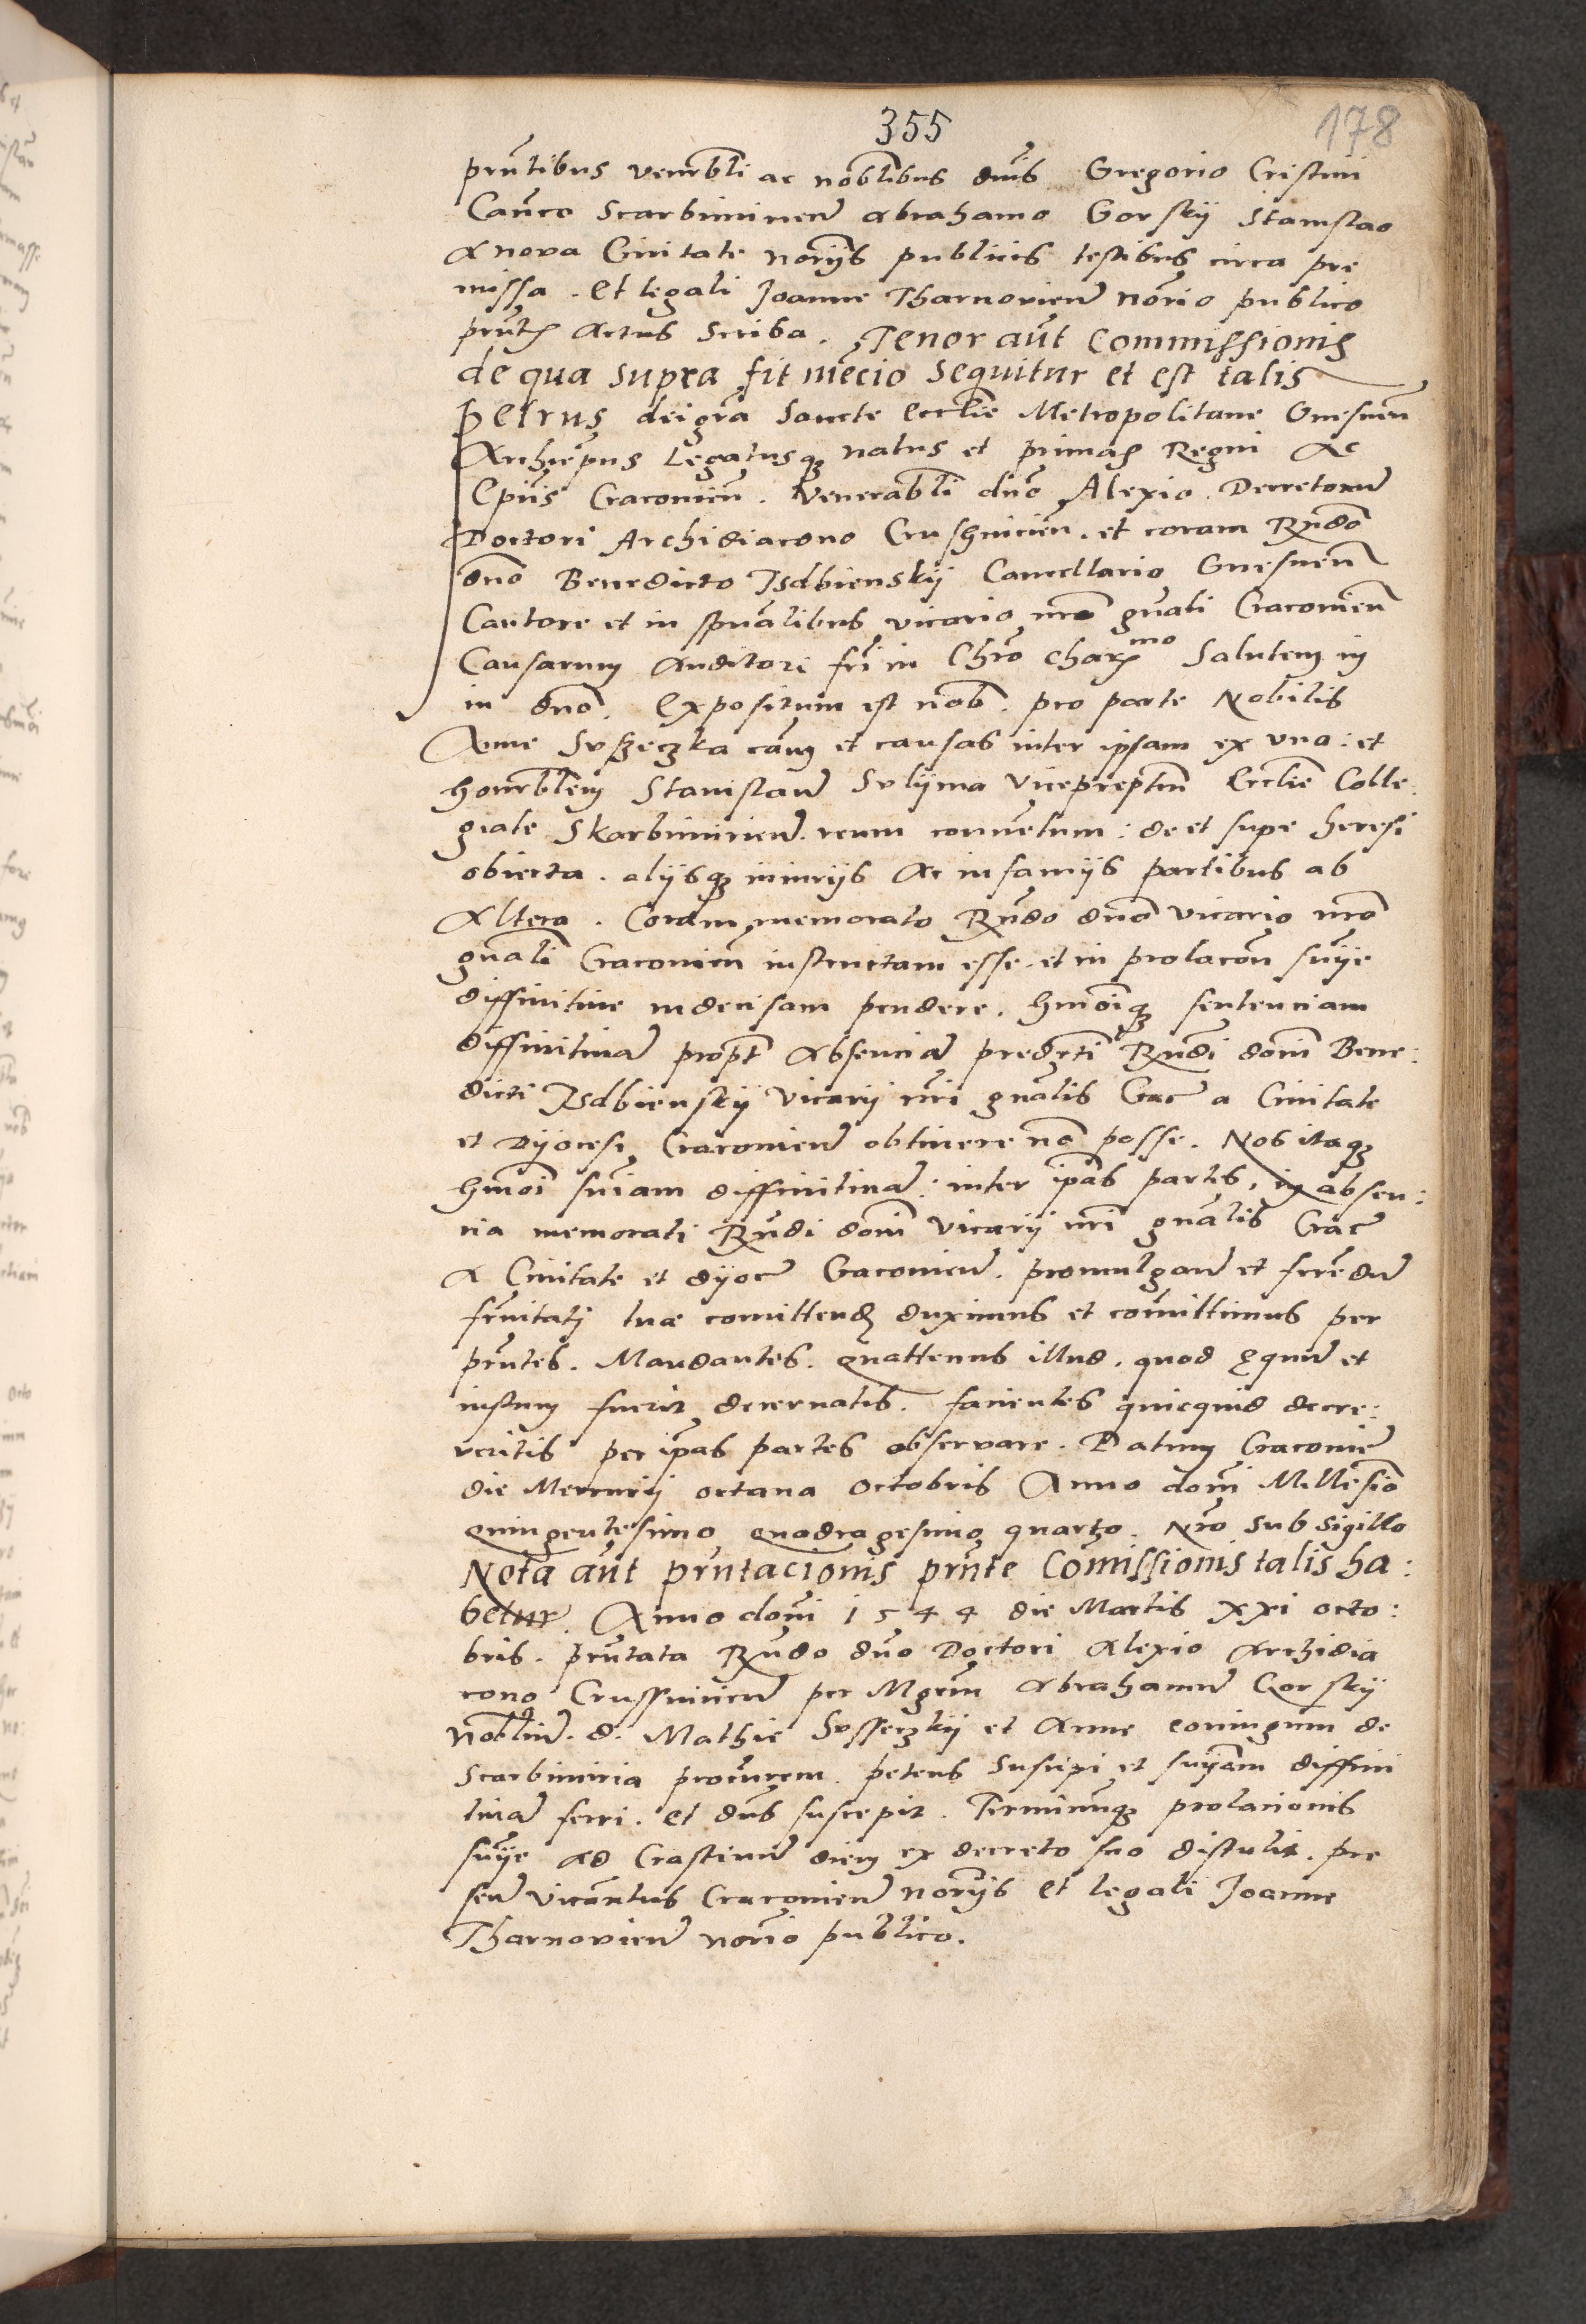 355
178
prñtibus venerbli ac noblibus dnis Gregorio Cristini
Cañco Scarbimirien Abrahamo Gorskÿ Stanislao
a nova Civitate noriis publicis testibus circa pre
missa. Et legali Joanne Tharnovien norio publico
prñtis Actus Scriba. Tenor aut Commissionis
de qua supra fit mecio sequitur et est talis
Petrus dei gra Sancte Ecclie Metropolitane Gnesnen
Archiepus Legatusq natus et primas Regni Ac
Epus Cracovien. Venerabli dno Alexio Decretorum
Doctori Archidiacono Crusphicien. et coram Rndo
dno Benedicto Jsdbienskÿ Cancellario Gnesnen
Cantore et in spualibus vicario nro gnali Cracovien
Causarum Auditori fri in Chro charmo Salutem in
in dno. Expositum est nob. pro parte Nobilis
Anne Sußeczka cam et causas inter ipsam ex vna: et
honrblem Stanislaum Sulÿma Vicepreptum Ecclie Colle:
giate Skarbimirien. reum conuentum: de et supe heresi
obiecta. alÿsq iniurÿs Ac infamÿs partibus ab
Altera. Coram memorato Rndo dno vicario nro
gnali Cracovien instructam esse. et in prolacon snie
diffinitive indecisam pendere. hmoiq sentenciam
diffinitivam propt Absenciam predcti Rndi doni Bene:
dicti Jsdbienskÿ Vicarÿ nri gnalis Crac a Civitate
et Dÿocesi Cracovien obtinere no posse. Nos itaq
hmoi sniam diffinitivam: inter ipas partes, in absen:
cia memorati Rndi doni vicarÿ nri gnalis Crac
a Civitate et dÿoc Cracovien. promulgan et ferendam
frnitati tuæ comittend duximus et comittimus per
prntes. Mandantes. quattenus illud. quod equum et
iustum fuerit decernatis. facientes quicquid decre:
veritis per ipas partes observare. Datum Cracovie
die Mercurÿ octava Octobris Anno domi Millesio
quingentesimo quadragesimo quarto. Nro sub sigillo
Nota aut prntacionis prnte Comissionis talis ha:
betur. Anno domi 1544 die Martis xxi octo:
bris. prntata Rndo dno Doctori Alexio Archidia
cono Crussvicien per Mgrm Abrahamum Gorskÿ
noblium. d. Mathie Susseczkÿ et Anne coniugum de
Scarbimiria procurem. petens suscipi et sniam diffini
tivam ferri. Et dns suscepit. Terminumq prolacionis
snie ad Crastinum diem ex decreto suo distulit. pre
sen vicariatus Cracovien norÿs et legali Joanne
Tharnovien norio publico.